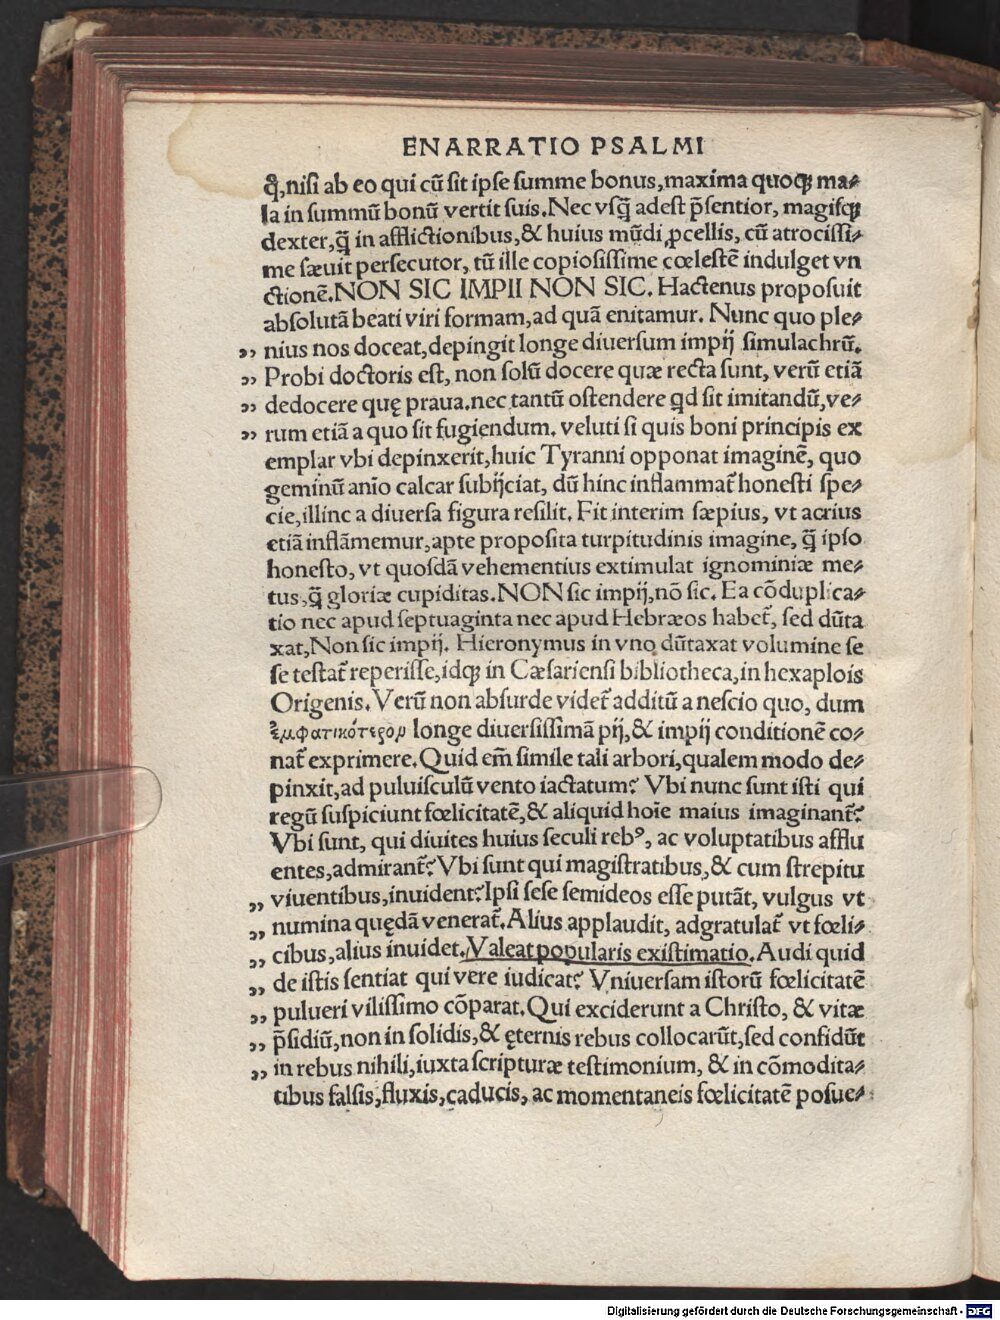 ENARRATIO PSALMI
q̃, nisi ab eo qui cũ sit ipse summe bonus, maxima quoqȝ ma⸗
la in summũ bonũ vertit suis. Nec vsq̃ adest p̃sentior, magisqȝ
dexter, q̃ in afflictionibus, & huius mũdi ꝓcellis, cũ atrocissi⸗
me sæuit persecutor, tũ ille copiosissime cœlestẽ indulget vn
ctionẽ. NON SIC IMPII NON SIC. Hactenus proposuit
absolutã beati viri formam, ad quã enitamur. Nunc quo ple⸗
„ nius nos doceat, depingit longe diuersum impij simulachrũ.
„ Probi doctoris est, non solũ docere quæ recta sunt, verũ etiã
„ dedocere quę praua. nec tantũ ostendere qd sit imitandũ, ve⸗
„ rum etiã a quo sit fugiendum. veluti si quis boni principis ex
emplar vbi depinxerit, huic Tyranni opponat imaginẽ, quo
geminũ anio calcar subijciat, dũ hinc inflammat᷑ honesti spe⸗
cie, illinc a diuersa figura resilit. Fit interim sæpius, vt acrius
etiã inflãmemur, apte proposita turpitudinis imagine, q̃ ipso
honesto, vt quosdã vehementius extimulat ignominiæ me⸗
tus, q̃ gloriæ cupiditas. NON sic impij, nõ sic. Ea cõduplica⸗
tio nec apud septuaginta nec apud Hebræos habet᷑, sed dũta
xat, Non sic impij. Hieronymus in vno dũtaxat volumine se
se testat᷑ reperisse, idqȝ in Cæsariensi bibliotheca, in hexaplois
Origenis. Verũ non absurde videt᷑ additũ a nescio quo, dum
ἐμφατικότερον longe diuersissimã pij, & impij conditionẽ co⸗
nat᷑ exprimere. Quid em̃ simile tali arbori, qualem modo de⸗
pinxit, ad puluisculũ vento iactatum? Vbi nunc sunt isti qui
regũ suspiciunt fœlicitatẽ, & aliquid hoie maius imaginant᷑?
Vbi sunt, qui diuites huius seculi rebꝰ, ac voluptatibus afflu
entes, admirant᷑? Vbi sunt qui magistratibus, & cum strepitu
„ viuentibus, inuident? Ipsi sese semideos esse putãt, vulgus vt
„ numina quędã venerat᷑. Alius applaudit, adgratulat᷑ vt fœli⸗
„ cibus, alius inuidet. Valeat popularis existimatio. Audi quid
„ de istis sentiat qui vere iudicat? Vniuersam istorũ fœlicitatẽ
„ pulueri vilissimo cõparat. Qui exciderunt a Christo, & vitæ
„ p̃sidiũ, non in solidis, & ęternis rebus collocarũt, sed confidũt
„ in rebus nihili, iuxta scripturæ testimonium, & in cõmodita⸗
tibus falsis, fluxis, caducis, ac momentaneis fœlicitatẽ posue⸗
Digitalisierung gefördert durch die Deutsche Forschungsgemeinschaft - DFG